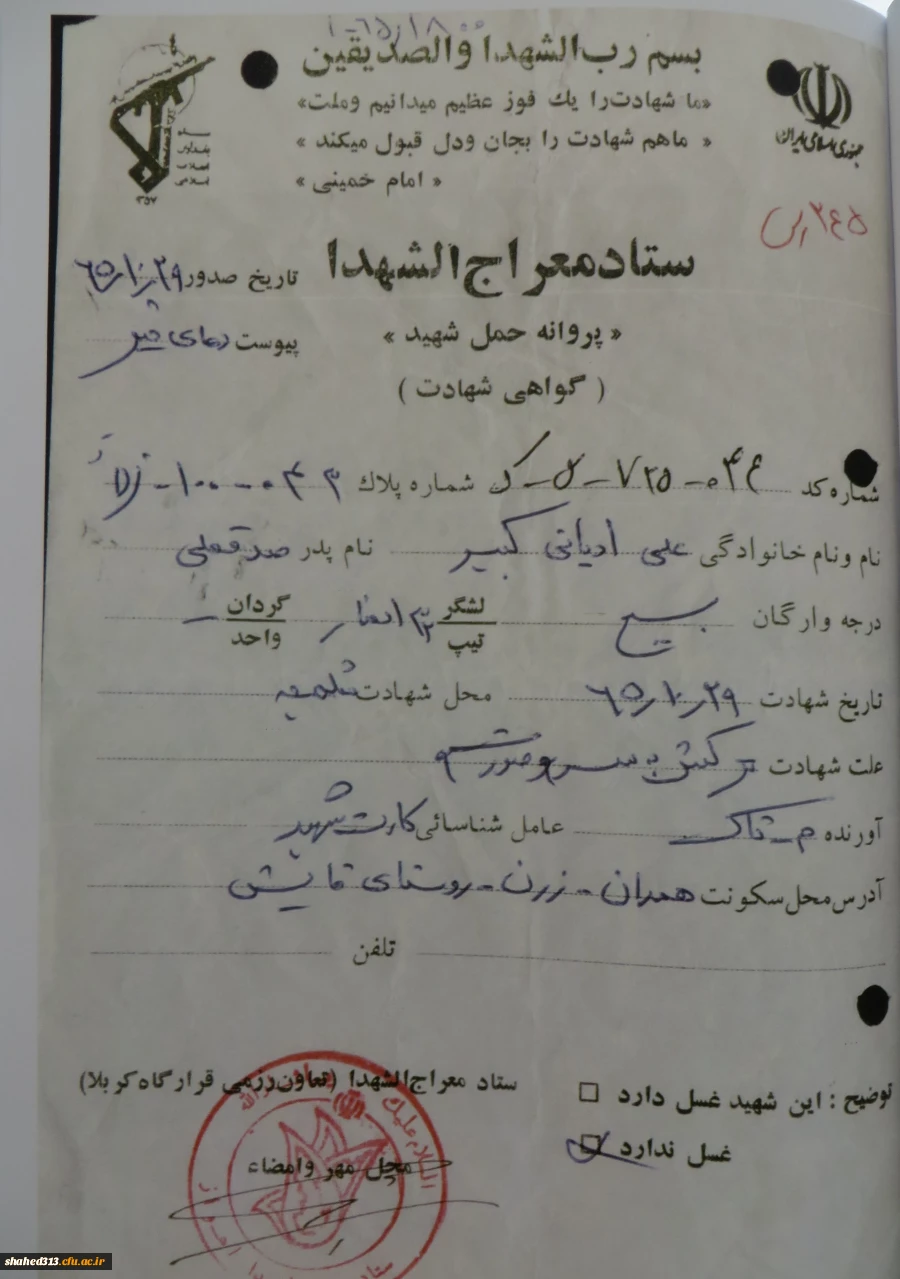 بسم رب الشهدا والصدیقین
«ما شهادت را یك فوز عظیم میدانیم وملت»
« ماهم شهادت را بجان ودل قبول میکند »
« امام خمینی »
جمهوری اسلامی ایران
۱۳۵۷
ستاد معراج الشهدا
تاریخ صدور ۶۵/۱۰/۲۹
« پروانه حمل شهید »
پیوست
( گواهی شهادت )
شماره کد
شماره پلاك
نام ونام خانوادگی علی ادیانی کبیر نام پدر صدقعلی
درجه وارگان بسیج لشگر تیپ ۳۲ انصار گردان واحد -
تاریخ شهادت ۶۵/۱۰/۲۹ محل شهادت شلمچه
علت شهادت ترکش به سر و صورت
آورنده عامل شناسائی کارت شهید
آدرس محل سکونت همدان - رزن - روستای
تلفن
ستاد معراج الشهدا (تعاون رزمی قرارگاه کربلا)
توضیح : این شهید غسل دارد □
غسل ندارد
محل مهر وامضاء
shahed313.cfu.ac.ir